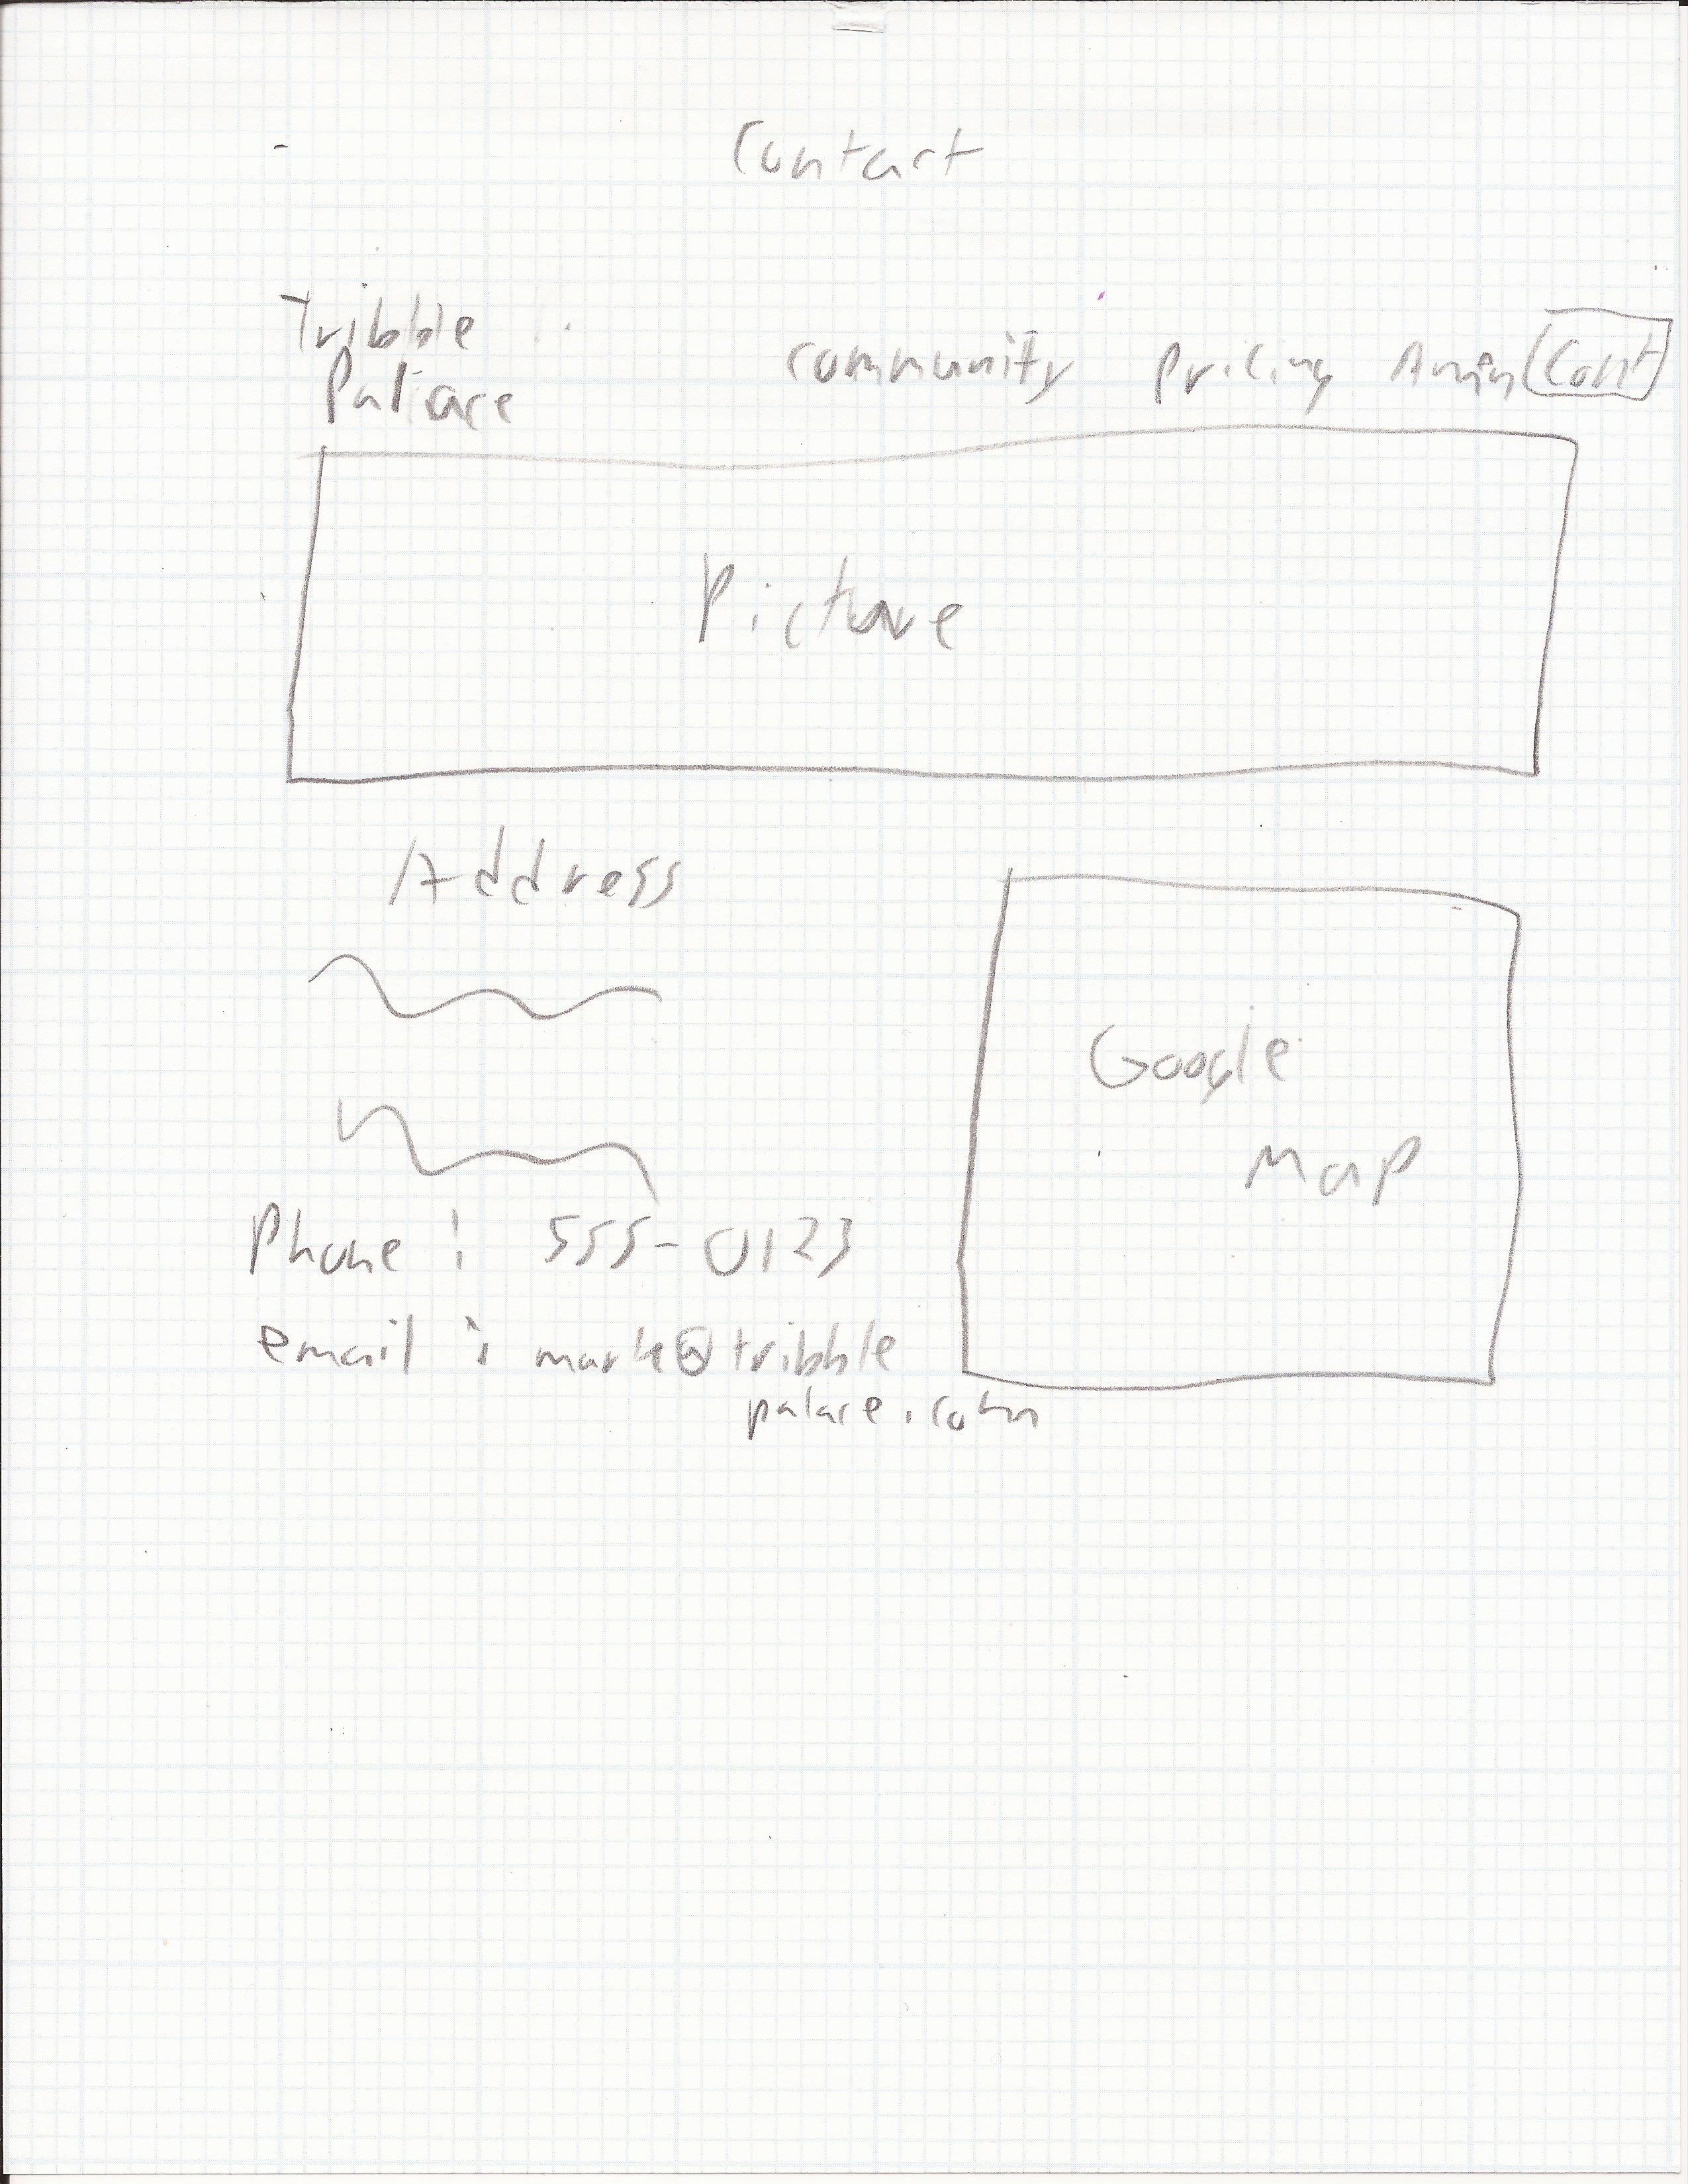 Contact
Tribble
Palace
Community Pricing Amin Cont
Picture
Address
Google
Map
Phone: 555-0123
email: mark@tribble
palace.com